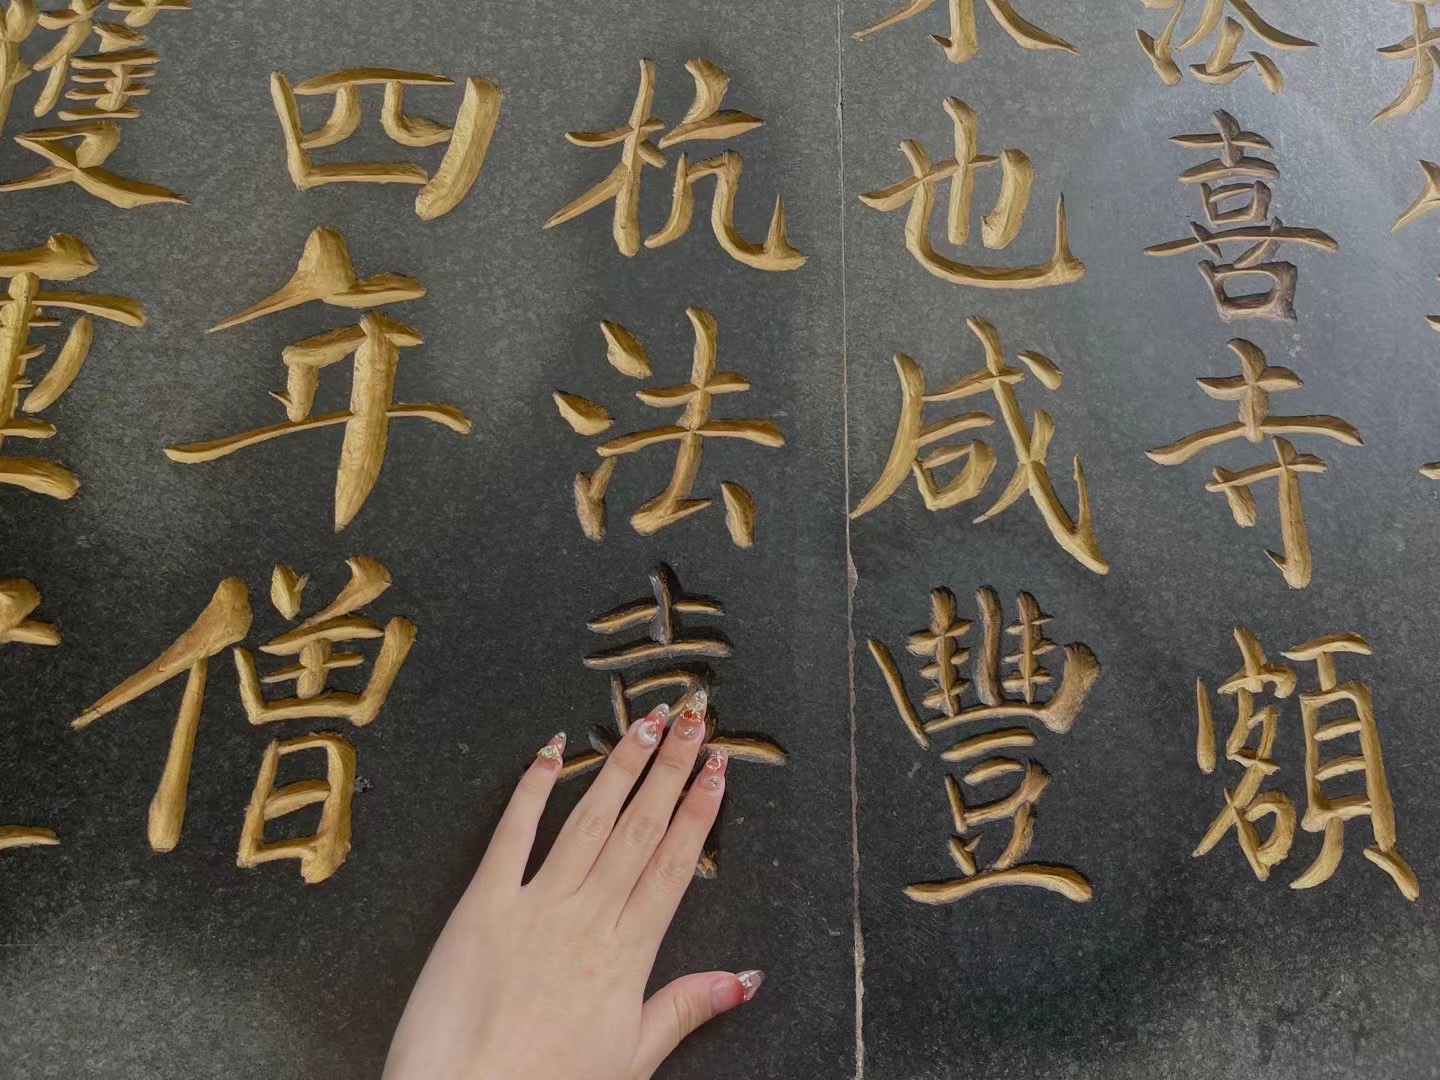 法喜寺額
也咸豐
杭法喜
四年僧